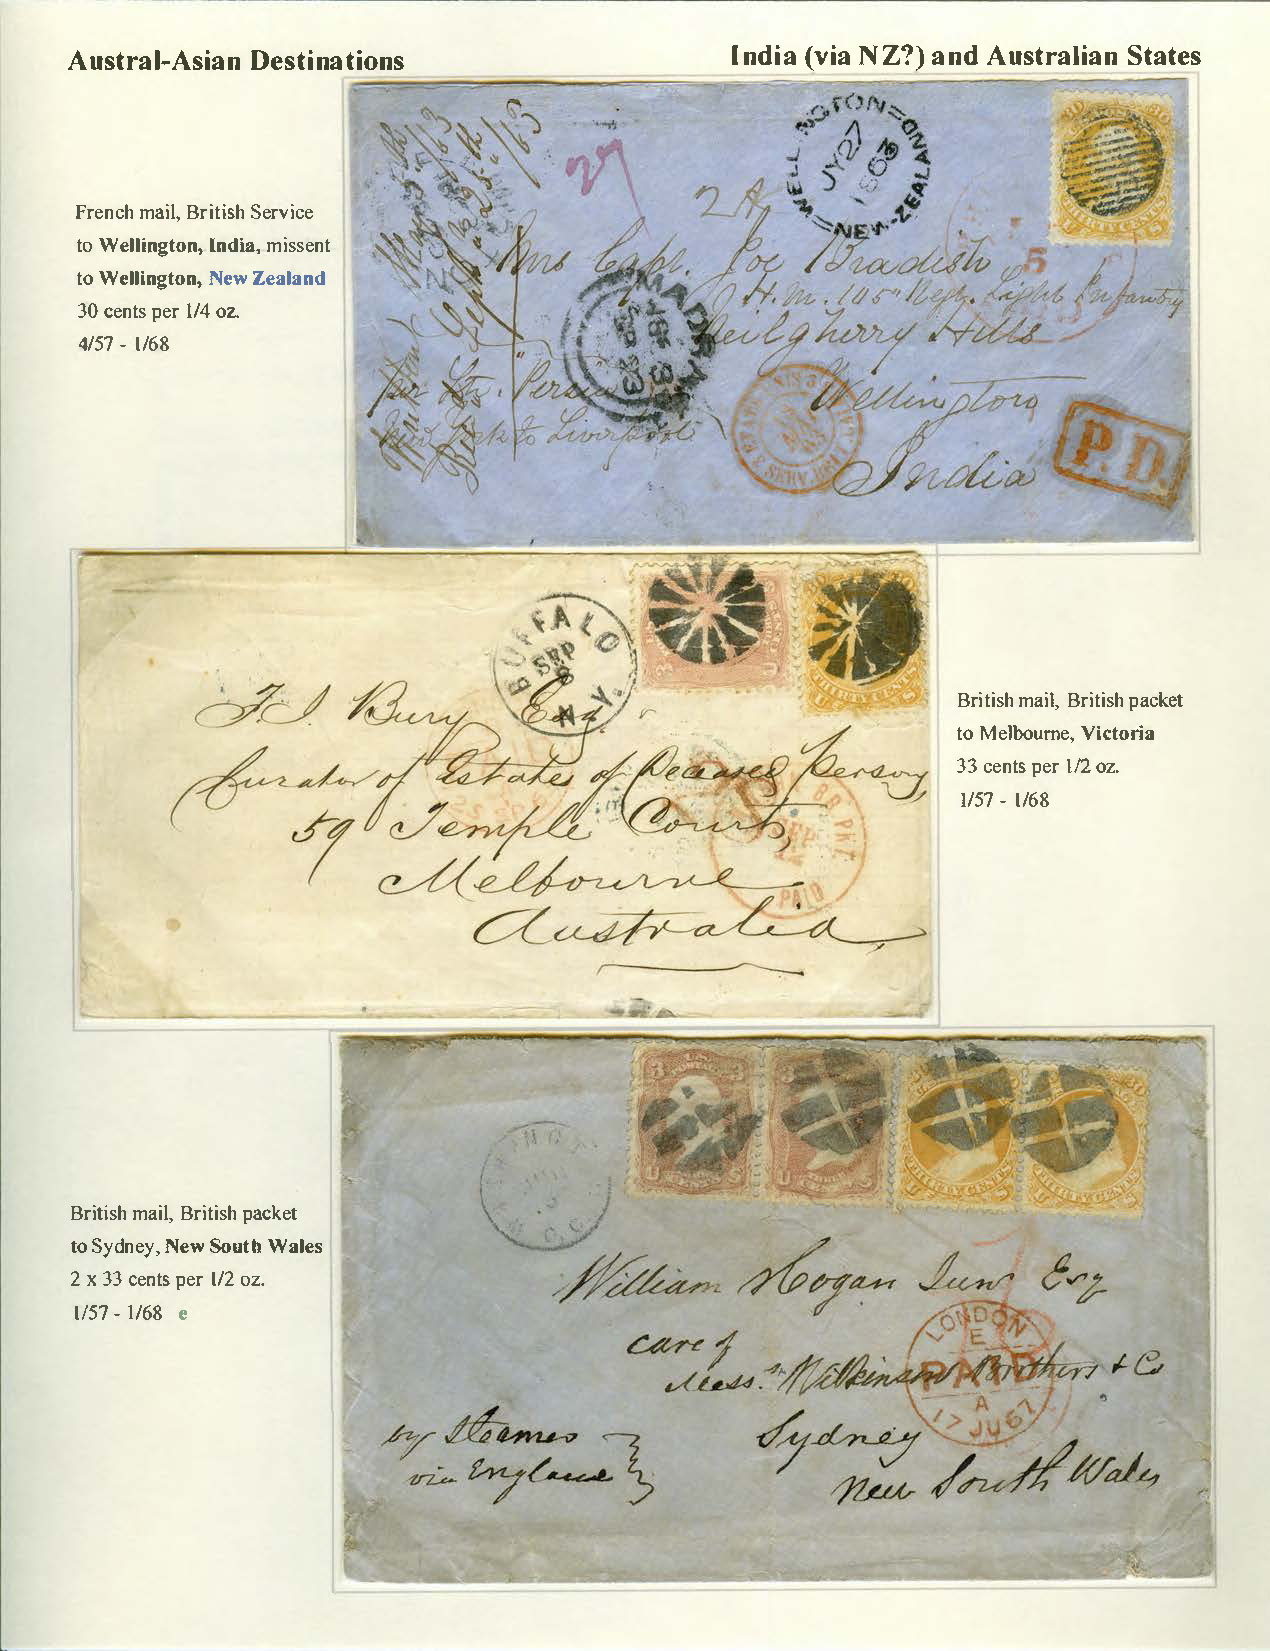 Austral-Asian Destinations
India (via NZ?) and Australian States
French mail, British Service
to Wellington, India, missent
to Wellington, New Zealand
30 cents per 1/4 oz.
4/57 - 1/68
WELLINGTON
JY 27
1863
NEW-ZEALAND
27
Mrs Capt. Joe Bradish
H.M. 105" Regt. Light Infantry
Neilgherry Hills
Wellington
India
"Persia"
New York to Liverpool
MADRAS
P.D.
THIRTY CENTS
BUFFALO
SEP
N.Y.
THIRTY CENTS
F. J. Bury Esq.
Curator of Estates of Deceased Persons,
59 Temple Court,
Melbourne
Australia,
BR PKT
SEP
PAID
British mail, British packet
to Melbourne, Victoria
33 cents per 1/2 oz.
1/57 - 1/68
British mail, British packet
to Sydney, New South Wales
2 x 33 cents per 1/2 oz.
1/57 - 1/68 e
3 3
30
THIRTY CENTS
THIRTY CENTS
D.C.
William Hogan Junr Esq
care of
Messrs. Wilkinson Brothers & Co
Sydney
New South Wales
by Steamer
via England
LONDON
E
PAID
A
17 JU 67